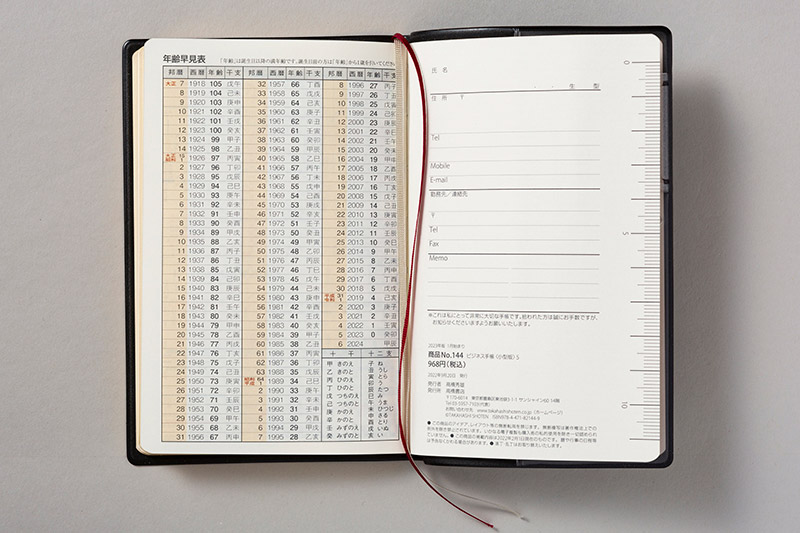 年齢早見表 「年齢」は誕生日以降の満年齢です。誕生日前の方は「年齢」から1歳を引いてくださ
邦暦 西暦 年齢 干支 邦暦 西暦 年齢 干支 邦暦 西暦 年齢 干支
大正 7 1918 105 戊午 32 1957 66 丁酉 8 1996 27 丙子
8 1919 104 己未 33 1958 65 戊戌 9 1997 26 丁丑
9 1920 103 庚申 34 1959 64 己亥 10 1998 25 戊寅
10 1921 102 辛酉 35 1960 63 庚子 11 1999 24 己卯
11 1922 101 壬戌 36 1961 62 辛丑 12 2000 23 庚辰
12 1923 100 癸亥 37 1962 61 壬寅 13 2001 22 辛巳
13 1924 99 甲子 38 1963 60 癸卯 14 2002 21 壬午
14 1925 98 乙丑 39 1964 59 甲辰 15 2003 20 癸未
大正 15 昭和 1 1926 97 丙寅 40 1965 58 乙巳 16 2004 19 甲申
2 1927 96 丁卯 41 1966 57 丙午 17 2005 18 乙酉
3 1928 95 戊辰 42 1967 56 丁未 18 2006 17 丙戌
4 1929 94 己巳 43 1968 55 戊申 19 2007 16 丁亥
5 1930 93 庚午 44 1969 54 己酉 20 2008 15 戊子
6 1931 92 辛未 45 1970 53 庚戌 21 2009 14 己丑
7 1932 91 壬申 46 1971 52 辛亥 22 2010 13 庚寅
8 1933 90 癸酉 47 1972 51 壬子 23 2011 12 辛卯
9 1934 89 甲戌 48 1973 50 癸丑 24 2012 11 壬辰
10 1935 88 乙亥 49 1974 49 甲寅 25 2013 10 癸巳
11 1936 87 丙子 50 1975 48 乙卯 26 2014 9 甲午
12 1937 86 丁丑 51 1976 47 丙辰 27 2015 8 乙未
13 1938 85 戊寅 52 1977 46 丁巳 28 2016 7 丙申
14 1939 84 己卯 53 1978 45 戊午 29 2017 6 丁酉
15 1940 83 庚辰 54 1979 44 己未 30 2018 5 戊戌
16 1941 82 辛巳 55 1980 43 庚申 平成 31 令和 1 2019 4 己亥
17 1942 81 壬午 56 1981 42 辛酉 2 2020 3 庚子
18 1943 80 癸未 57 1982 41 壬戌 3 2021 2 辛丑
19 1944 79 甲申 58 1983 40 癸亥 4 2022 1 壬寅
20 1945 78 乙酉 59 1984 39 甲子 5 2023 0 癸卯
21 1946 77 丙戌 60 1985 38 乙丑 6 2024 甲辰
22 1947 76 丁亥 61 1986 37 丙寅 十干 十二支
23 1948 75 戊子 62 1987 36 丁卯 甲 きのえ 子 ね
24 1949 74 己丑 63 1988 35 戊辰 乙 きのと 丑 うし
25 1950 73 庚寅 昭和 64 平成 1 1989 34 己巳 丙 ひのえ 寅 とら
26 1951 72 辛卯 2 1990 33 庚午 丁 ひのと 卯 う
27 1952 71 壬辰 3 1991 32 辛未 戊 つちのえ 辰 たつ
28 1953 70 癸巳 4 1992 31 壬申 己 つちのと 巳 み
29 1954 69 甲午 5 1993 30 癸酉 庚 かのえ 午 うま
30 1955 68 乙未 6 1994 29 甲戌 辛 かのと 未 ひつじ
31 1956 67 丙申 7 1995 28 乙亥 壬 みずのえ 申 さる
癸 みずのと 酉 とり
戌 いぬ
亥 い
氏 名
・ ・ 生 型
住 所 〒
Tel
Mobile
E-mail
勤務先／連絡先
〒
Tel
Fax
Memo
※これは私にとって非常に大切な手帳です。拾われた方は誠にお手数ですが、
お知らせくださいますようお願いいたします。
2023年版 1月始まり
商品No.144 ビジネス手帳〈小型版〉5
968円（税込）
2022年9月20日 発行
発行者 高橋秀雄
発行所 高橋書店
〒170-6014 東京都豊島区東池袋3-1-1 サンシャイン60 14階
お問い合わせ先 www.takahashishoten.co.jp（ホームページ）
0
5
10